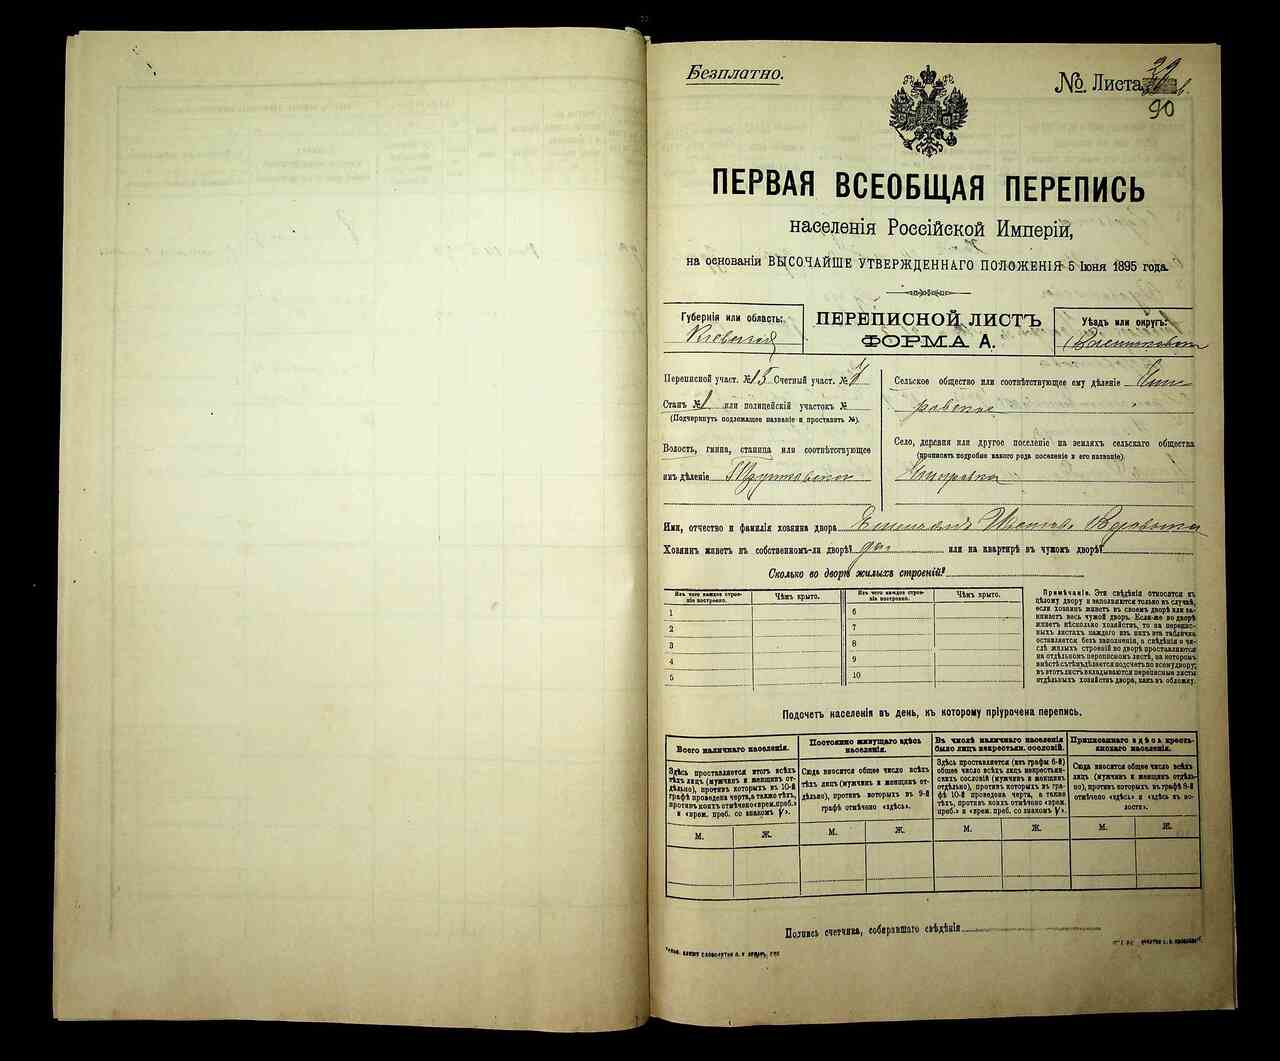 Безплатно.
№. Листа 29
90
ПЕРВАЯ ВСЕОБЩАЯ ПЕРЕПИСЬ
населенія Россійской Имперіи,
на основаніи ВЫСОЧАЙШЕ УТВЕРЖДЕННАГО ПОЛОЖЕНІЯ 5 Іюня 1895 года.
Губернія или область:
Киевская
ПЕРЕПИСНОЙ ЛИСТЪ
ФОРМА А.
Уѣздъ или округъ:
Переписной участ. № 15 Счетный участ. №
Станъ № 1 или полицейскій участокъ №
(Подчеркнуть подлежащее названіе и проставить №).
Волость, гмина, станица или соотвѣтствующее
имъ дѣленіе
Сельское общество или соотвѣтствующее ему дѣленіе
Село, деревня или другое поселеніе на земляхъ сельскаго общества
(приписать подробно какого рода поселеніе и его названіе).
Имя, отчество и фамилія хозяина двора
Хозяинъ живетъ въ собственномъ-ли дворѣ? да или на квартирѣ въ чужомъ дворѣ?
Сколько во дворѣ жилыхъ строеній?
Изъ чего каждое строеніе построено.
Чѣмъ крыто.
Изъ чего каждое строеніе построено.
Чѣмъ крыто.
1
2
3
4
5
6
7
8
9
10
Примѣчаніе. Эти свѣдѣнія относятся къ
цѣлому двору и заполняются только въ случаѣ,
если хозяинъ живетъ въ своемъ дворѣ или за-
нимаетъ весь чужой дворъ. Если-же во дворѣ
живетъ нѣсколько хозяйствъ, то на перепис-
ныхъ листахъ каждаго изъ нихъ эта табличка
оставляется безъ заполненія, а свѣдѣнія о чи-
слѣ жилыхъ строеній во дворѣ проставляются
на отдѣльномъ переписномъ листѣ, на которомъ
вмѣстѣ съ тѣмъ дѣлается подсчетъ по всему двору;
въ этотъ листъ вкладываются переписные листы
отдѣльныхъ хозяйствъ двора, какъ въ обложку.
Подсчетъ населенія въ день, къ которому пріурочена перепись.
Всего наличнаго населенія.
Здѣсь проставляется итогъ всѣхъ
тѣхъ лицъ (мужчинъ и женщинъ от-
дѣльно), противъ которыхъ въ 10-й
графѣ проведена черта, а также тѣхъ,
противъ коихъ отмѣчено «врем. преб.»
и «врем. преб. со знакомъ V».
Постоянно живущаго здѣсь
населенія.
Сюда вносится общее число всѣхъ
тѣхъ лицъ (мужчинъ и женщинъ от-
дѣльно), противъ которыхъ въ 9-й
графѣ отмѣчено «здѣсь».
Въ числѣ наличнаго населенія
было лицъ некрестьян. сословій.
Здѣсь проставляется (изъ графы 6-й)
общее число всѣхъ лицъ некрестьян-
скихъ сословій (мужчинъ и женщинъ
отдѣльно), противъ которыхъ въ гра-
фѣ 10-й проведена черта, а также
тѣхъ, противъ коихъ отмѣчено «врем.
преб.» и «врем. преб. со знакомъ V».
Приписаннаго здѣсь кресть-
янскаго населенія.
Сюда вносится общее число всѣхъ
лицъ (мужчинъ и женщинъ отдѣль-
но), противъ которыхъ въ графѣ 8-й
отмѣчено «здѣсь» и «здѣсь въ во-
лости».
М. Ж. М. Ж. М. Ж. М. Ж.
Подпись счетчика, собиравшаго свѣдѣнія